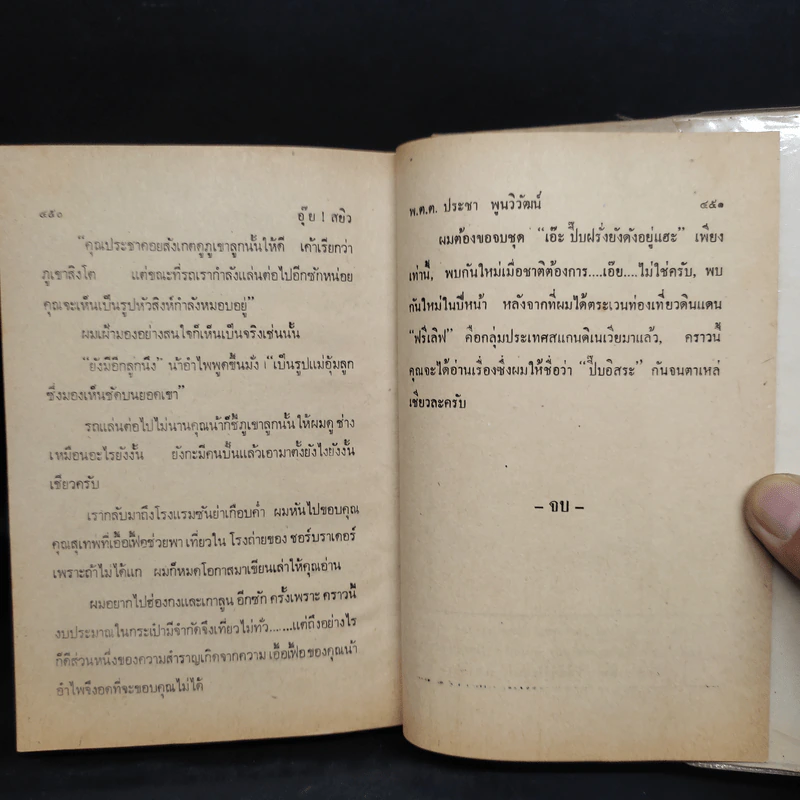 ๔๕๐ อุ๊ย ! สยิว
“คุณประชาคอยสังเกตดูภูเขาลูกนั้นให้ดี เค้าเรียกว่า
ภูเขาสิงโต แต่ขณะที่รถเรากำลังแล่นต่อไปอีกซักหน่อย
คุณจะเห็นเป็นรูปหัวสิงห์กำลังหมอบอยู่”
ผมเฝ้ามองอย่างสนใจก็เห็นเป็นจริงเช่นนั้น
“ยังมีอีกลูกนึง” น้าอำไพพูดขึ้นมั่ง “เป็นรูปแม่อุ้มลูก
ซึ่งมองเห็นชัดบนยอดเขา”
รถแล่นต่อไปไม่นานคุณน้าก็ชี้ภูเขาลูกนั้นให้ผมดู ช่าง
เหมือนอะไรยังงั้น ยังกะมีคนปั้นแล้วเอามาตั้งยังไงยังงั้น
เชียวครับ
เรากลับมาถึงโรงแรมซันย่าเกือบค่ำ ผมหันไปขอบคุณ
คุณสุเทพที่เอื้อเฟื้อช่วยพาเที่ยวใน โรงถ่ายของ ชอร์บราเดอร์
เพราะถ้าไม่ได้แก ผมก็หมดโอกาสมาเขียนเล่าให้คุณอ่าน
ผมอยากไปฮ่องกงและเกาลูน อีกซัก ครั้งเพราะ คราวนี้
งบประมาณในกระเป๋ามีจำกัดจึงเที่ยวไม่ทั่ว.......แต่ถึงอย่างไร
ก็ดีส่วนหนึ่งของความสำราญเกิดจากความ เอื้อเฟื้อ ของคุณน้า
อำไพจึงอดที่จะขอบคุณไม่ได้
พ.ต.ต. ประชา พูนวิวัฒน์ ๔๕๑
ผมต้องขอจบชุด “เอ๊ะ ปี๊บฝรั่งยังดังอยู่แฮะ” เพียง
เท่านี้, พบกันใหม่เมื่อชาติต้องการ....เอ๊ย....ไม่ใช่ครับ, พบ
กันใหม่ในปีหน้า หลังจากที่ผมได้ตระเวนท่องเที่ยวดินแดน
“ฟรีเลิฟ” คือกลุ่มประเทศสแกนดิเนเวียมาแล้ว, คราวนี้
คุณจะได้อ่านเรื่องซึ่งผมให้ชื่อว่า “ปี๊บอิสระ” กันจนตาเหล่
เชียวละครับ
– จบ –